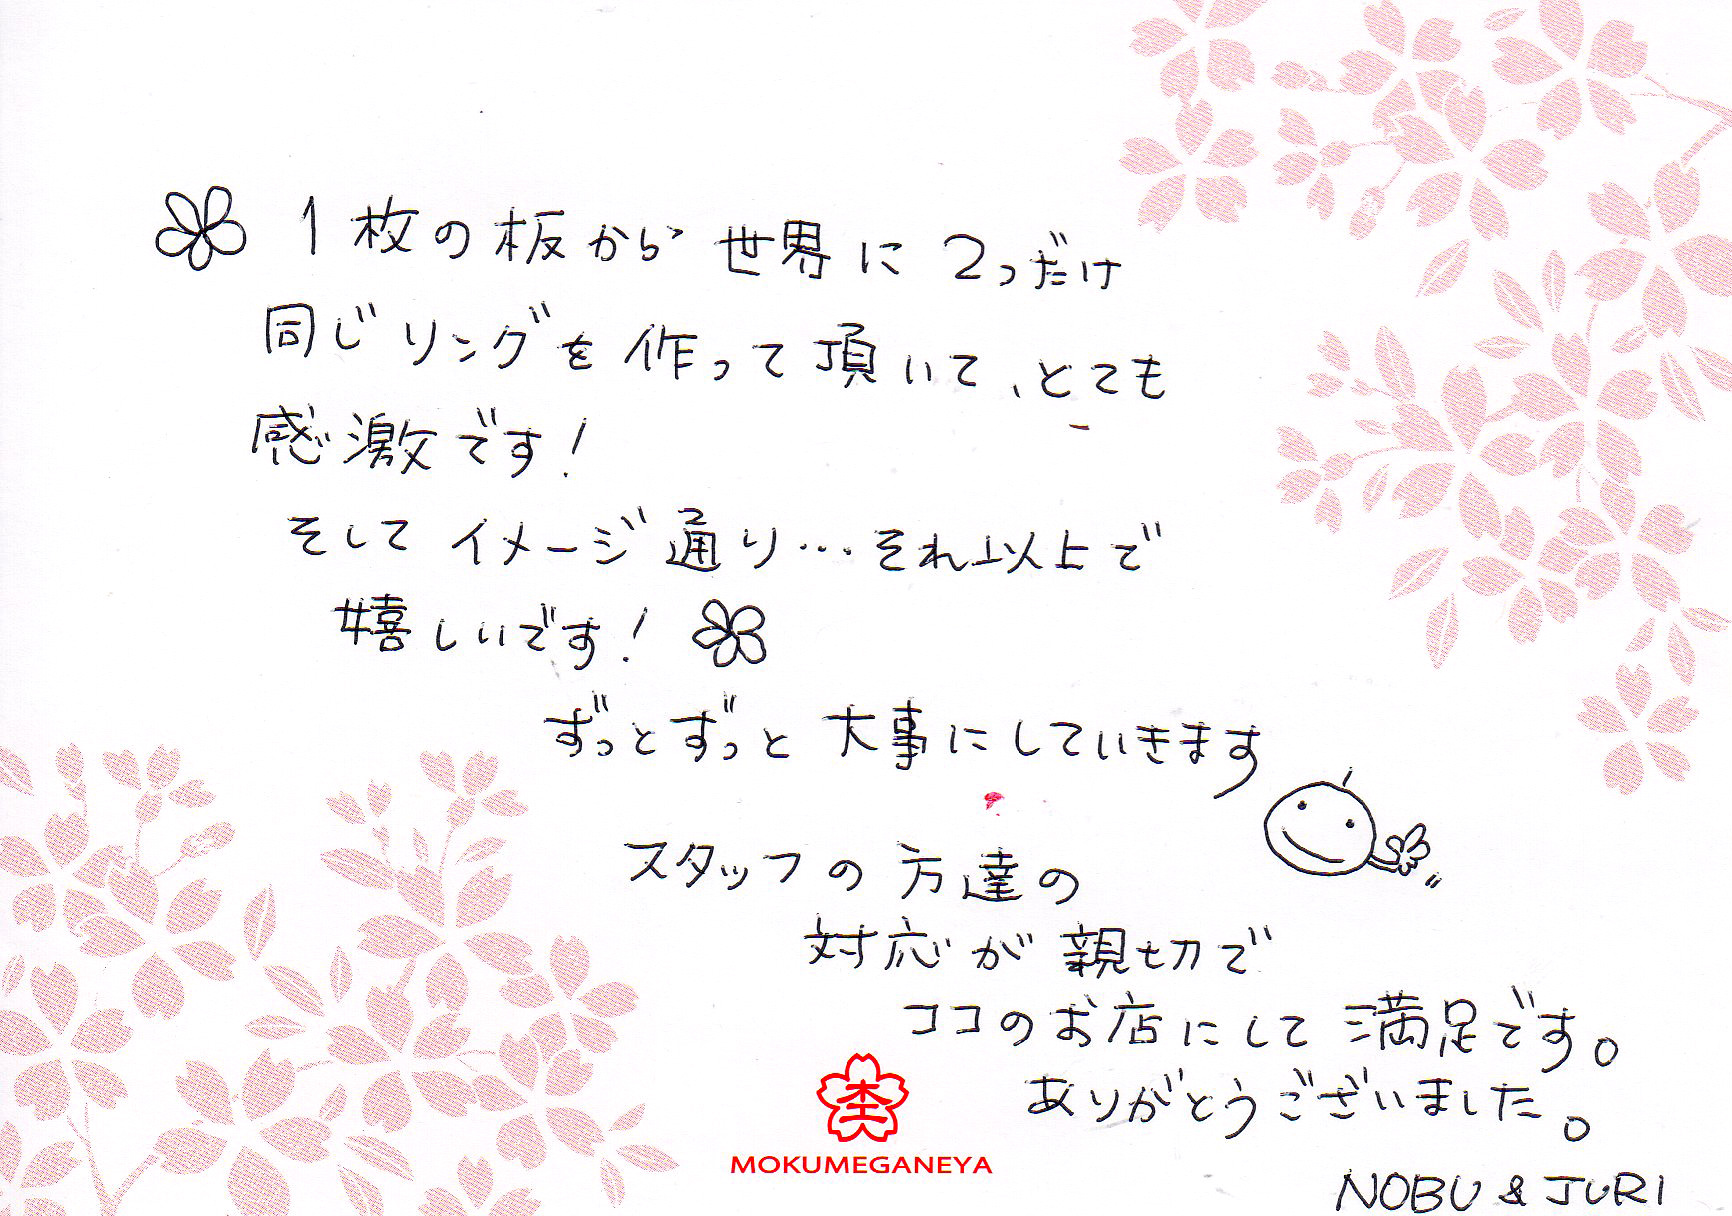 1枚の板から世界に2つだけ
同じリングを作って頂いて、とても
感激です!
そしてイメージ通り…それ以上で
嬉しいです!
ずっとずっと大事にしていきます
スタッフの方達の
対応が親切で
ココのお店にして満足です。
ありがとうございました。
MOKUMEGANEYA
NOBU & JURI